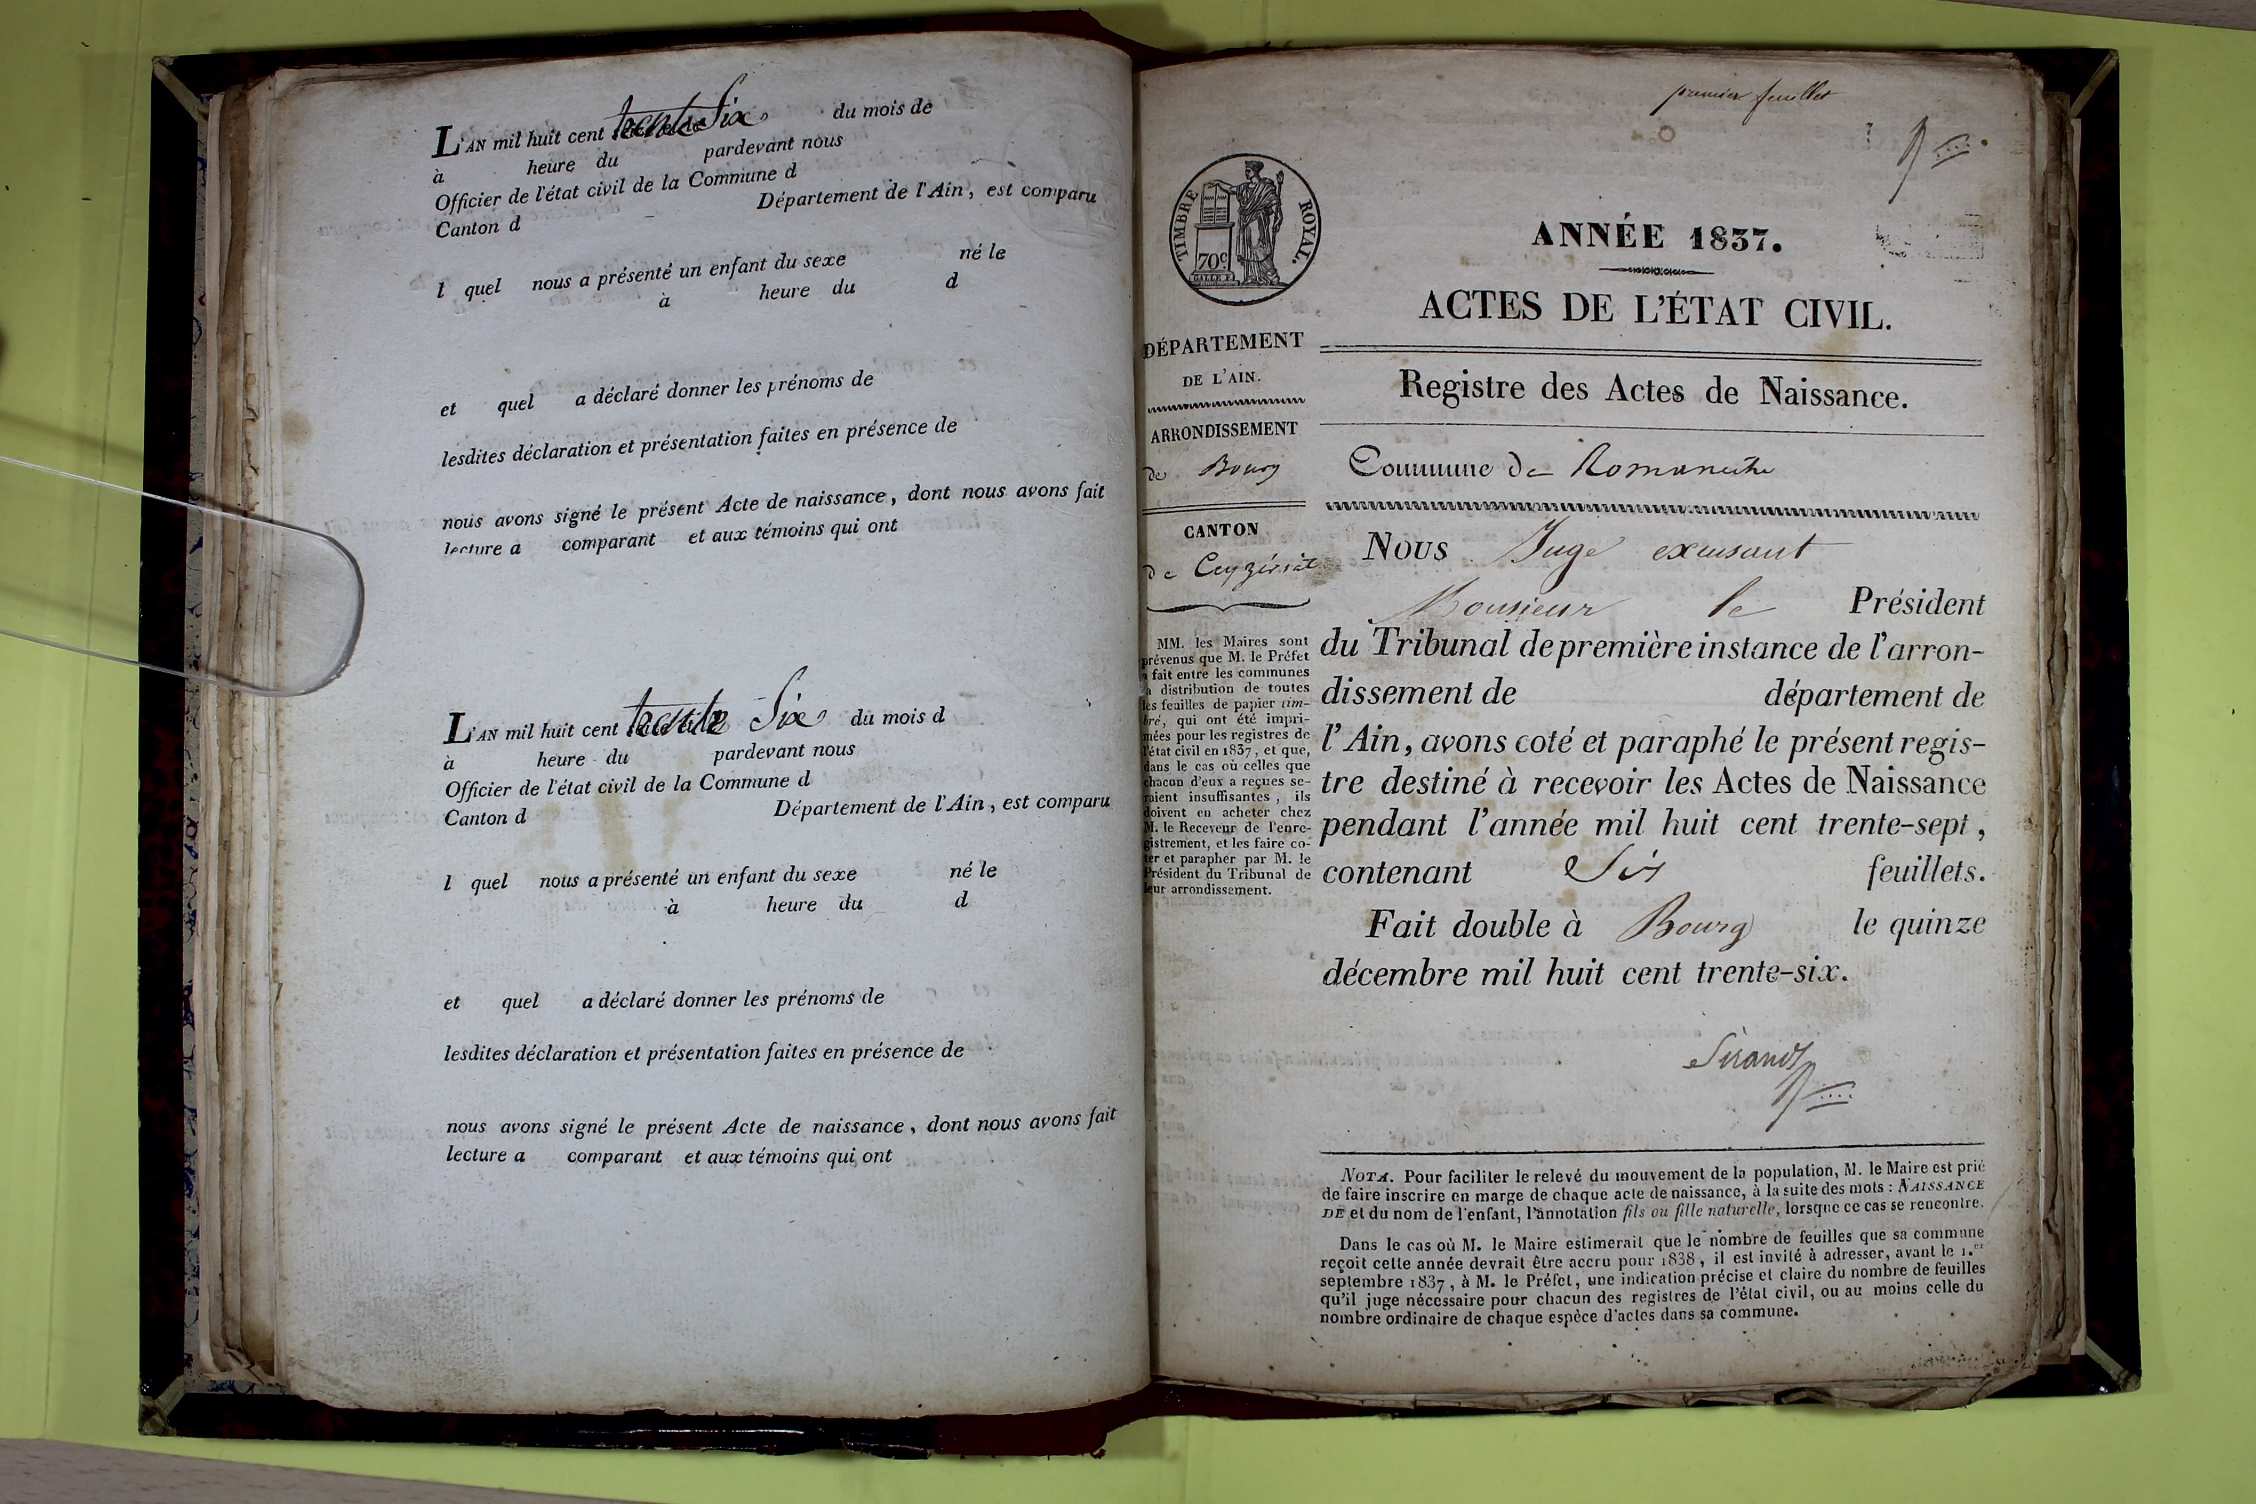 L'AN mil huit cent trente Six du mois de
à heure du pardevant nous
Officier de l'état civil de la Commune d
Canton d Département de l'Ain, est comparu
l quel nous a présenté un enfant du sexe né le
à heure du d
et quel a déclaré donner les prénoms de
lesdites déclaration et présentation faites en présence de
nous avons signé le présent Acte de naissance, dont nous avons fait
lecture a comparant et aux témoins qui ont
L'AN mil huit cent trente Six du mois d
à heure du pardevant nous
Officier de l'état civil de la Commune d
Canton d Département de l'Ain, est comparu
l quel nous a présenté un enfant du sexe né le
à heure du d
et quel a déclaré donner les prénoms de
lesdites déclaration et présentation faites en présence de
nous avons signé le présent Acte de naissance, dont nous avons fait
lecture a comparant et aux témoins qui ont
premier feuillet
TIMBRE ROYAL.
70c
ANNÉE 1837.
ACTES DE L'ÉTAT CIVIL.
DÉPARTEMENT
DE L'AIN.
ARRONDISSEMENT
de Bourg
CANTON
de Ceyzériat
MM. les Maires sont
prévenus que M. le Préfet
a fait entre les communes
la distribution de toutes
les feuilles de papier tim-
bré, qui ont été impri-
mées pour les registres de
l'état civil en 1837, et que,
dans le cas où celles que
chacun d'eux a reçues se-
raient insuffisantes, ils
doivent en acheter chez
M. le Receveur de l'enre-
gistrement, et les faire co-
ter et parapher par M. le
Président du Tribunal de
leur arrondissement.
Registre des Actes de Naissance.
Commune de Romanèche
Nous Juge excusant
Monsieur le Président
du Tribunal de première instance de l'arron-
dissement de département de
l'Ain, avons coté et paraphé le présent regis-
tre destiné à recevoir les Actes de Naissance
pendant l'année mil huit cent trente-sept,
contenant Six feuillets.
Fait double à Bourg le quinze
décembre mil huit cent trente-six.
Sirand
NOTA. Pour faciliter le relevé du mouvement de la population, M. le Maire est prié
de faire inscrire en marge de chaque acte de naissance, à la suite des mots : NAISSANCE
DE et du nom de l'enfant, l'annotation fils ou fille naturelle, lorsque ce cas se rencontre.
Dans le cas où M. le Maire estimerait que le nombre de feuilles que sa commune
reçoit cette année devrait être accru pour 1838, il est invité à adresser, avant le 1.er
septembre 1837, à M. le Préfet, une indication précise et claire du nombre de feuilles
qu'il juge nécessaire pour chacun des registres de l'état civil, ou au moins celle du
nombre ordinaire de chaque espèce d'actes dans sa commune.